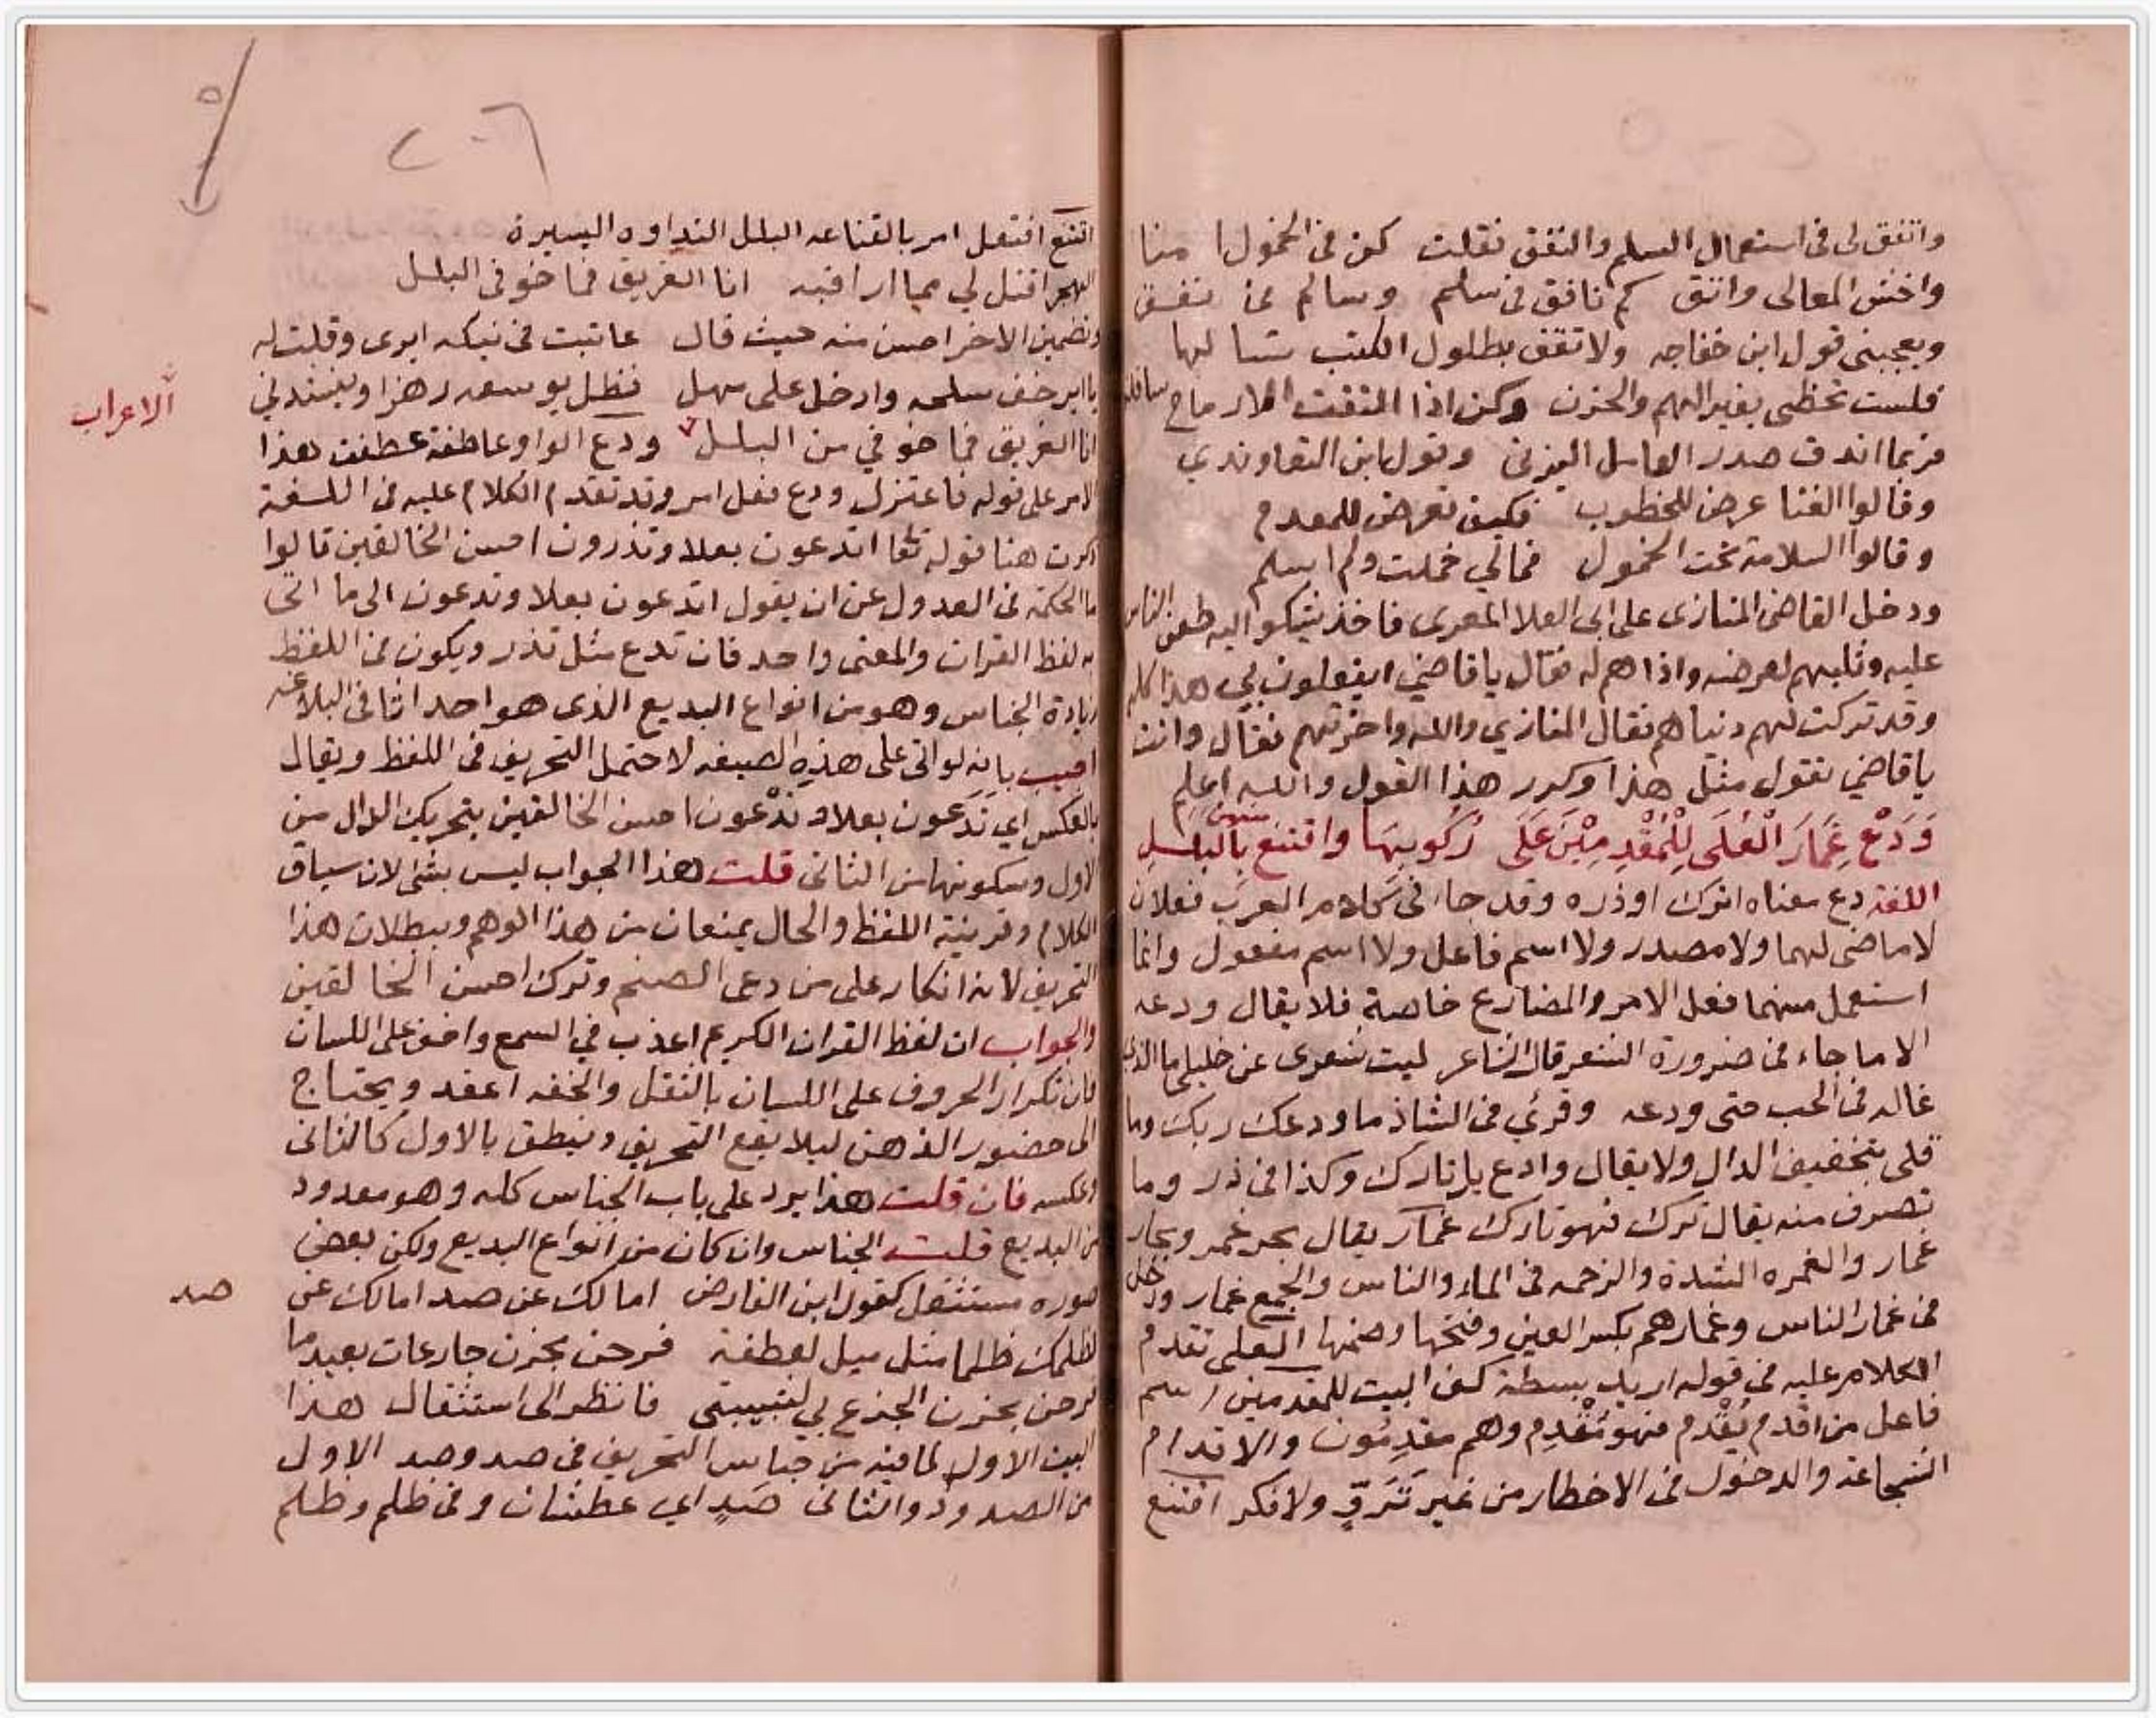 واتفق لى فى استعمال السلم والنفق فقلت كن فى الخمول امنا
واخش المعالى واتق كم نافق فى سلم وسالم فى نفق
ويعجبنى قول ابن خفاجه ولا تقف بطلول الكتب تسألها
فلست تحظى بغير الهم والحزن وكن اذا التقت الارماح سافلة
فربما اندق صدر العاسل اليزنى وقول ابن التعاويذي
وقالوا الغنا عرض للخطوب فكيف تعرض للمعدم
وقالوا السلامة تحت الخمول فمالي خملت ولم اسلم
ودخل القاضى المنازى على ابى العلا المعرى فاخذ يشكوا اليه طعن الناس
عليه وثلبهم لعرضه واذاهم له فقال يا قاضي ايفعلون بي هذا كله
وقد تركت لهم دنياهم فقال المنازي والله واخرتهم فقال وانت
يا قاضي تقول مثل هذا وكرر هذا القول والله اعلم
وَدَعْ غِمَارَ الْعُلَى لِلْمُقْدِمِيْنَ عَلَى رُكُوبِهَا واقتنع منهن بالبلل
اللغة دع معناه اترك او ذره وقد جاء فى كلام العرب فعلان
لا ماضى لهما ولا مصدر ولا اسم فاعل ولا اسم مفعول وانما
استعمل منهما فعل الامر والمضارع خاصة فلا يقال ودعه
الا ما جاء فى ضرورة الشعر قال الشاعر ليت شعرى عن خليلى ما الذى
غاله فى الحب حتى ودعه وقرئ فى الشاذ ما ودعك ربك وما
قلى بتخفيف الدال ولا يقال وادع بل تارك وكذا فى ذر وما
تصرف منه يقال ترك فهو تارك غمار يقال بحر غمر وبحار
غمار والغمره الشدة والزحمه فى الماء والناس والجمع غمار ودخل
فى غمار الناس وغمارهم بكسر الغين وفتحها وضمها العلى تقدم
الكلام عليه فى قوله اريد بسطة كف البيت للمقدمين اسم
فاعل من اقدم يُقْدم فهو مُقْدِم وهم مقدِمُون والاقدام
الشجاعة والدخول فى الاخطار من غير تَرَوٍّ ولا فكر اقتنع
اقتنع افتعل امر بالقناعه البلل النداوه اليسيرة
الهجر اقتل لي مما اراقبه انا الغريق فما خوفى البلل
وتضمين الاخر احسن منه حيث قال عاتبت فى نيكه ايرى وقلت له
يا اير خف سلحه وادخل على مهل فظل يوسعه رهزا وينشدني
انا الغريق فما خوفي من البلل ودع الواو عاطفة عطفت هذا
الاعراب
الامر على قوله فاعتزل ودع فعل امر وقد تقدم الكلام عليه فى اللغة
اذكرت هنا قوله تعا اتدعون بعلا وتذرون احسن الخالقين قالوا
ما الحكمة فى العدول عن ان يقول اتدعون بعلا وتدعون الى ما اتى
به لفظ القران والمعنى واحد فان تدع مثل تذر ويكون فى اللفظ
زيادة الجناس وهو من انواع البديع الذى هو احد اثافى البلاغه
اجيب بانه لو اتى على هذه الصيغه لاحتمل التحريف فى اللفظ ويقال
بالعكس اي تَدَعون بعلا وتدْعون احسن الخالقين بتحريك الدال من
الاول وسكونها من الثانى قلت هذا الجواب ليس بشئ لان سياق
الكلام وقرينة اللفظ والحال يمنعان من هذا الوهم وبطلان هذا
التحريف لانه انكار على من دعى الصنم وترك احسن الخالقين
والجواب ان لفظ القران الكريم اعذب في السمع واخف على اللسان
فان تكرار الحروف على اللسان بالثقل والخفه اعقد ويحتاج
الى حضور الذهن ليلا يقع التحريف وينطق بالاول كالثانى
وعكسه فان قلت هذا يرد على باب الجناس كله وهو معدود
من البديع قلت الجناس وان كان من انواع البديع ولكن بعض
صوره مستثقل كقول ابن الفارض امالك عن صد امالك عن
صد
لظلمك ظلما مثل ميل لعطفة فرحن بحزن جازعات بعيد ما
فرحن بحزن الجزع بي لشبيبتى فانظر الى استثقال هذا
البيت الاول لما فيه من جناس التحريف فى صد وصد الاول
من الصدود والثانى صَدٍ اي عطشان وفى ظلم وظلم